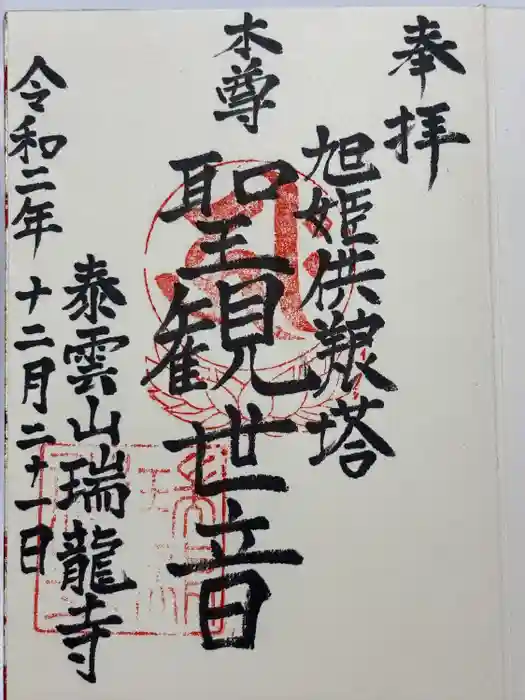 奉拝
旭姫供養塔
本尊
聖観世音
泰雲山瑞龍寺
令和二年十二月二十一日